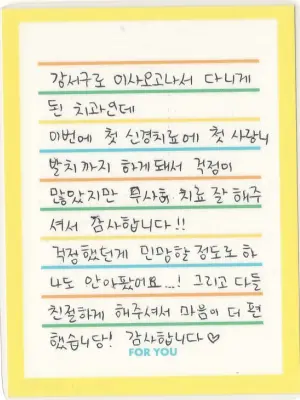 강서구로 이사오고나서 다니게
된 치과인데
이번에 첫 신경치료에 첫 사랑니
발치까지 하게돼서 걱정이
많았지만 무사히 치료 잘 해주
셔서 감사합니다!!
걱정했던게 민망할 정도로 하
나도 안아팠어요...! 그리고 다들
친절하게 해주셔서 마음이 더 편
했습니당! 감사합니다♡
FOR YOU